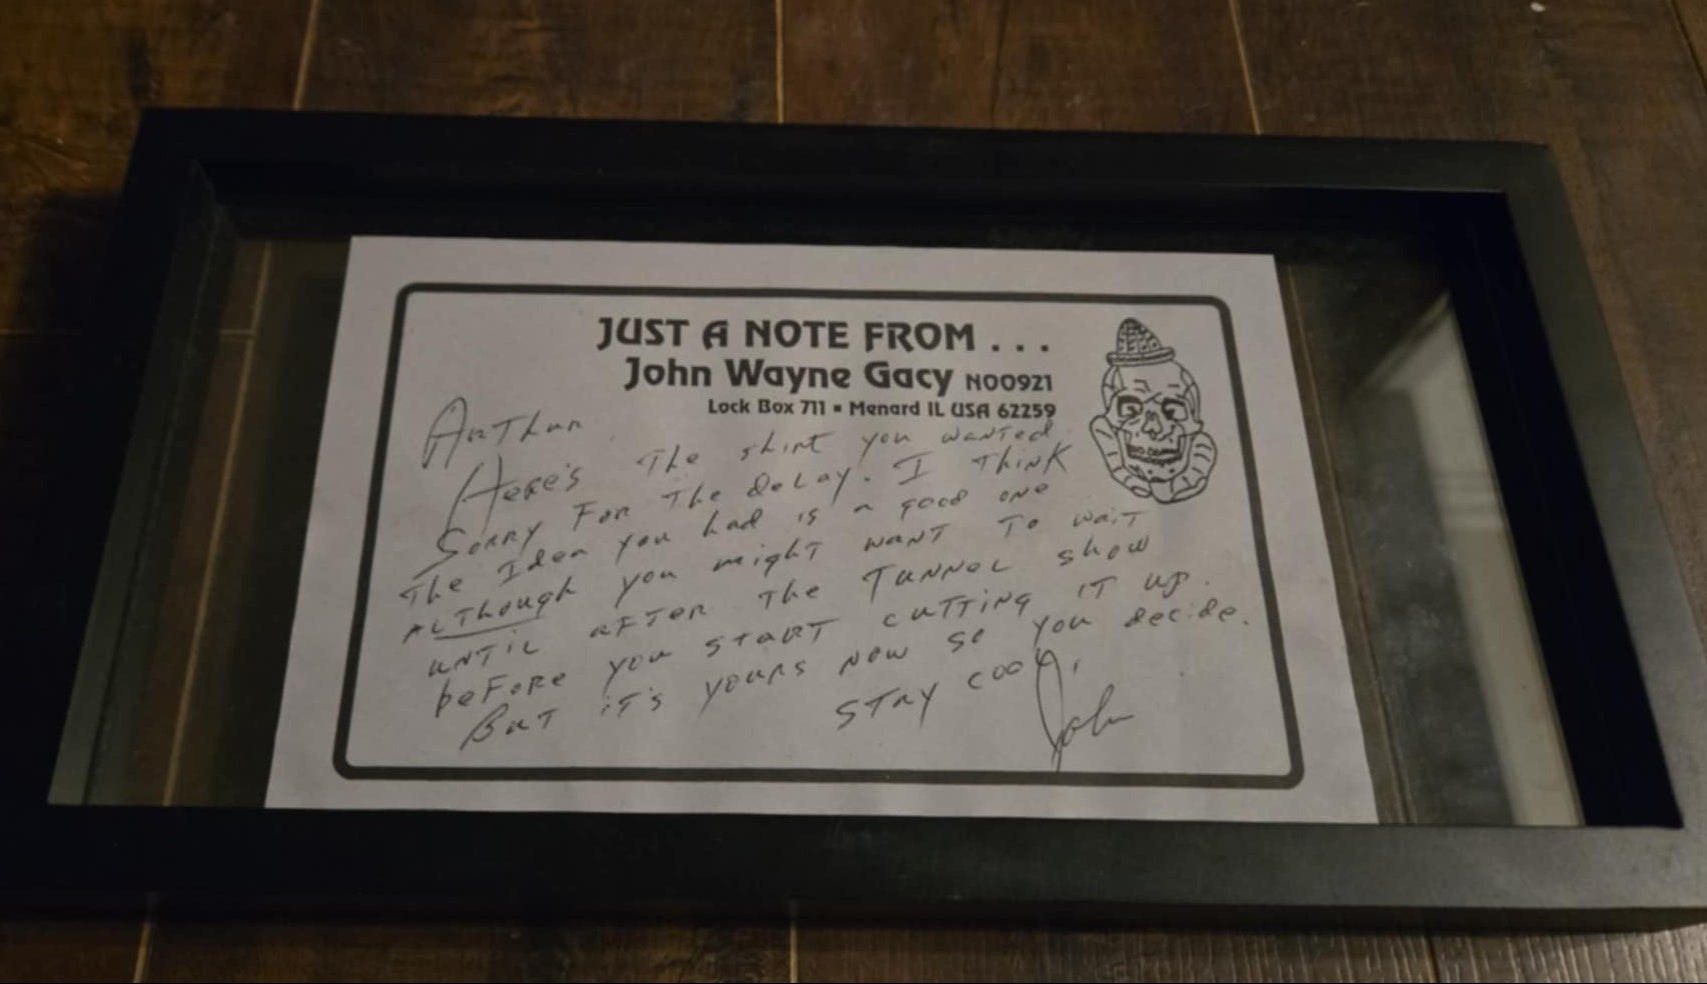 JUST A NOTE FROM . . .
John Wayne Gacy N00921
Lock Box 711 ▪ Menard IL USA 62259
Arthur
Here's The shirt you wanted
Sorry For The deLay. I Think
The Idea you had is a good one
ALThough you might want To wait
untiL after The TunneL show
beFore you start cutting it up.
But it's yours now so you decide.
Stay cool,
John